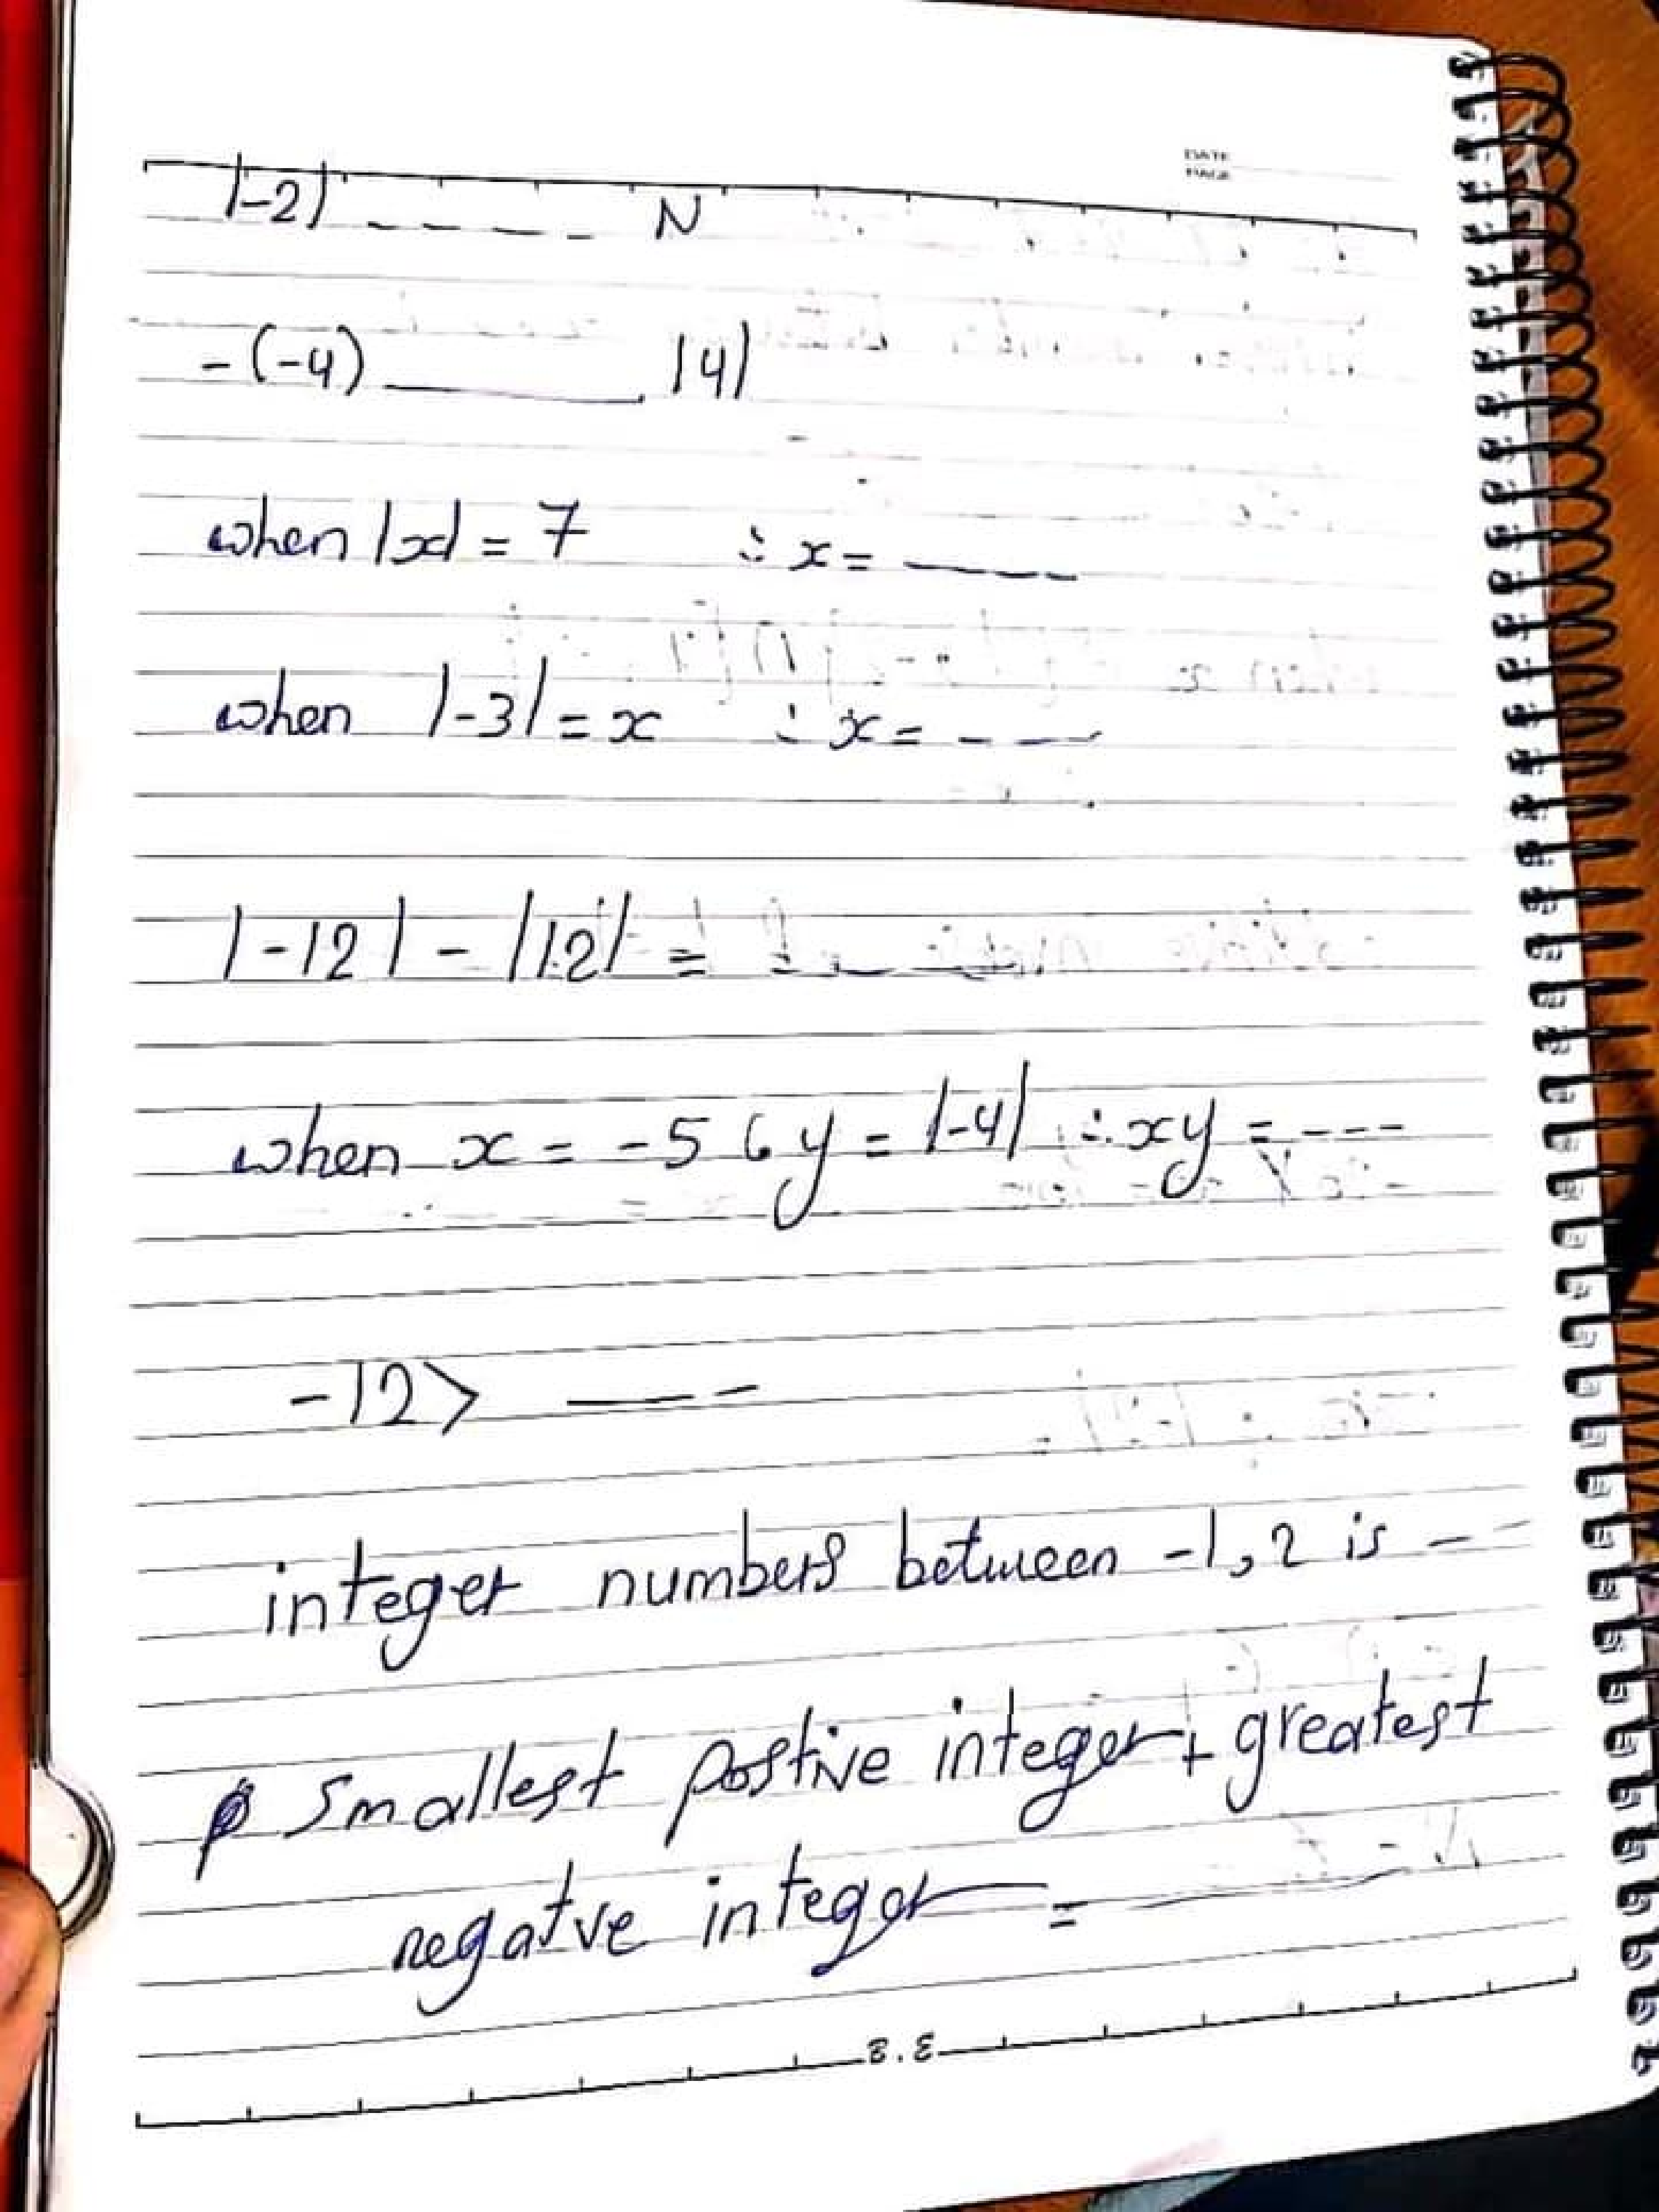 DATE
PAGE
|-2| ----- N
-(-4) ______ |4|
when |x| = 7 ∴ x = ----
when |-3| = x ∴ x = ----
|-12| - |12| = ----
when x = -5 , y = |-4| ∴ xy = ----
-12 > ----
integer numbers between -1, 2 is --
Smallest postive integer + greatest
negatve integer = ______
B.E